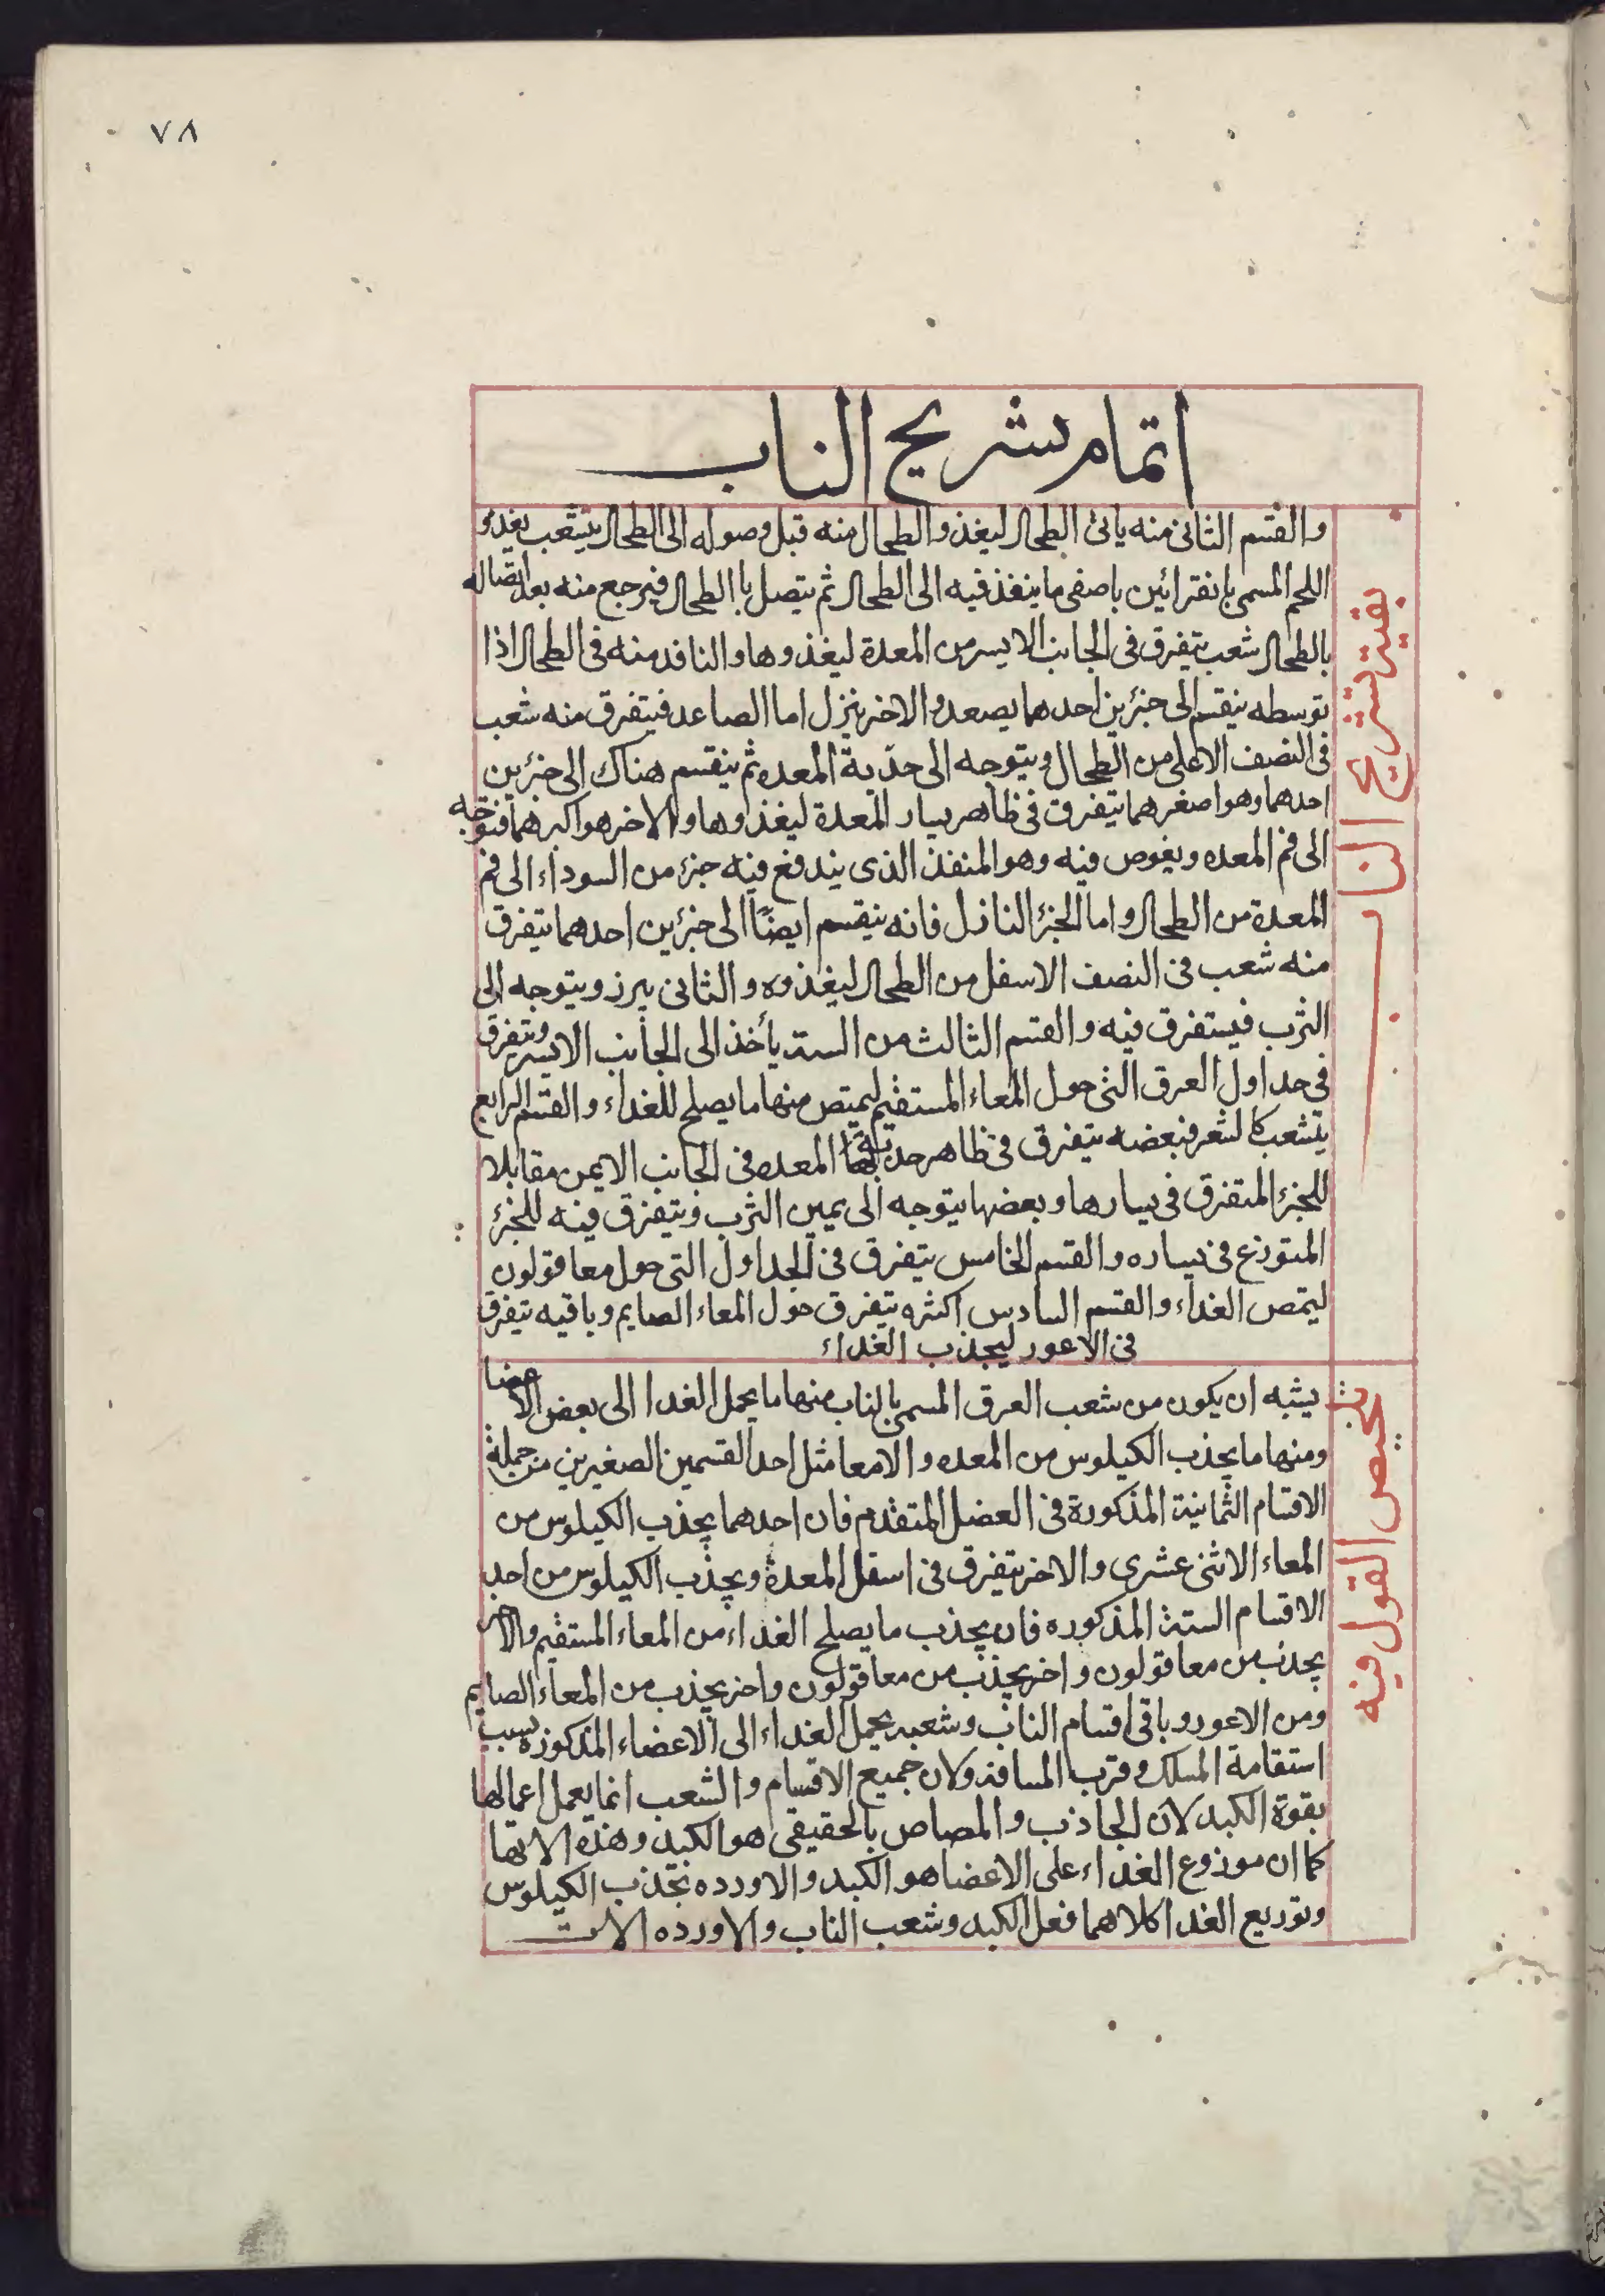 ٧٨
اتمام تشريح الناب
بقية تشريح الناب
والقسم الثانى منه ياتى الطحال ليغذو الطحال منه قبل وصوله الى الطحال يتشعب يغذو
اللحم المسمى بانقرائين باصفى ما ينفذ فيه الى الطحال ثم يتصل باالطحال فيرجع منه بعد اتصاله
بالطحال شعب يتفرق فى الجانب الايسر من المعدة ليغذوها والنافد منه فى الطحال اذا
توسطه ينقسم الى جزئين احدهما يصعد والاخر ينزل اما الصاعد فيتفرق منه شعب
فى النصف الاعلى من الطحال ويتوجه الى حدبة المعده ثم ينقسم هناك الى جزئين
احدهما وهو اصغرهما يتفرق فى ظاهر يسار المعدة ليغذوها والاخر هو اكبرهما فيتوجه
الى فم المعده ويغوص فيه وهو المنفذ الذى يندفع فيه جزء من السوداء الى فم
المعدة من الطحال واما الجزء النازل فانه ينقسم ايضًا الى جزئين احدهما يتفرق
منه شعب فى النصف الاسفل من الطحال ليغذوه والثانى يبرز ويتوجه الى
الثرب فيستفرق فيه والقسم الثالث من الستة يأخذ الى الجانب الايسر ويتفرق
فى جداول العرق التى حول المعاء المستقيم ليمتص منها ما يصلح للغداء والقسم الرابع
يتشعب كالشعر فبعضه يتفرق فى ظاهر حدبة المعده فى الجانب الايمن مقابلا
للجزء المتفرق فى يسارها وبعضها يتوجه الى يمين الثرب ويتفرق فيه للجزء
المتوزع فى يساره والقسم الخامس يتفرق فى الجداول التى حول معا قولون
ليمتص الغداء والقسم السادس اكثره يتفرق حول المعاء الصايم وباقيه يتفرق
فى الاعور ليجذب الغداء
تخيص القول فيه
يشبه ان يكون من شعب العرق المسمى بالناب منها ما يحمل الغدا الى بعض الاعضا
ومنها ما يجذب الكيلوس من المعده والامعا مثل احد القسمين الصغيرين من جملة
الاقسام الثمانية المذكورة فى الفصل المتقدم فان احدهما يجذب الكيلوس من
المعاء الاثنى عشرى والاخر يتفرق فى اسفل المعدة ويجذب الكيلوس من احد
الاقسام الستة المذكوره فان يجذب ما يصلح الغداء من المعاء المستقيم والاخر
يجذب من معا قولون واخر يجذب من معا قولون واخر يجذب من المعاء الصايم
ومن الاعور وباقى اقسام الناب وشعبه يحمل الغداء الى الاعضاء المذكورة بسبب
استقامة المسلك وقرب المسافة ولان جميع الاقسام والشعب انما يعمل اعمالها
بقوة الكبد لان الجاذب والمصاص بالحقيقى هو الكبد وهذه الاتها
كما ان موزوع الغداء على الاعضا هو الكبد والاورده تجذب الكيلوس
وتوزيع الغدا كلاهما فعل الكبد وشعب الناب والاورده الات